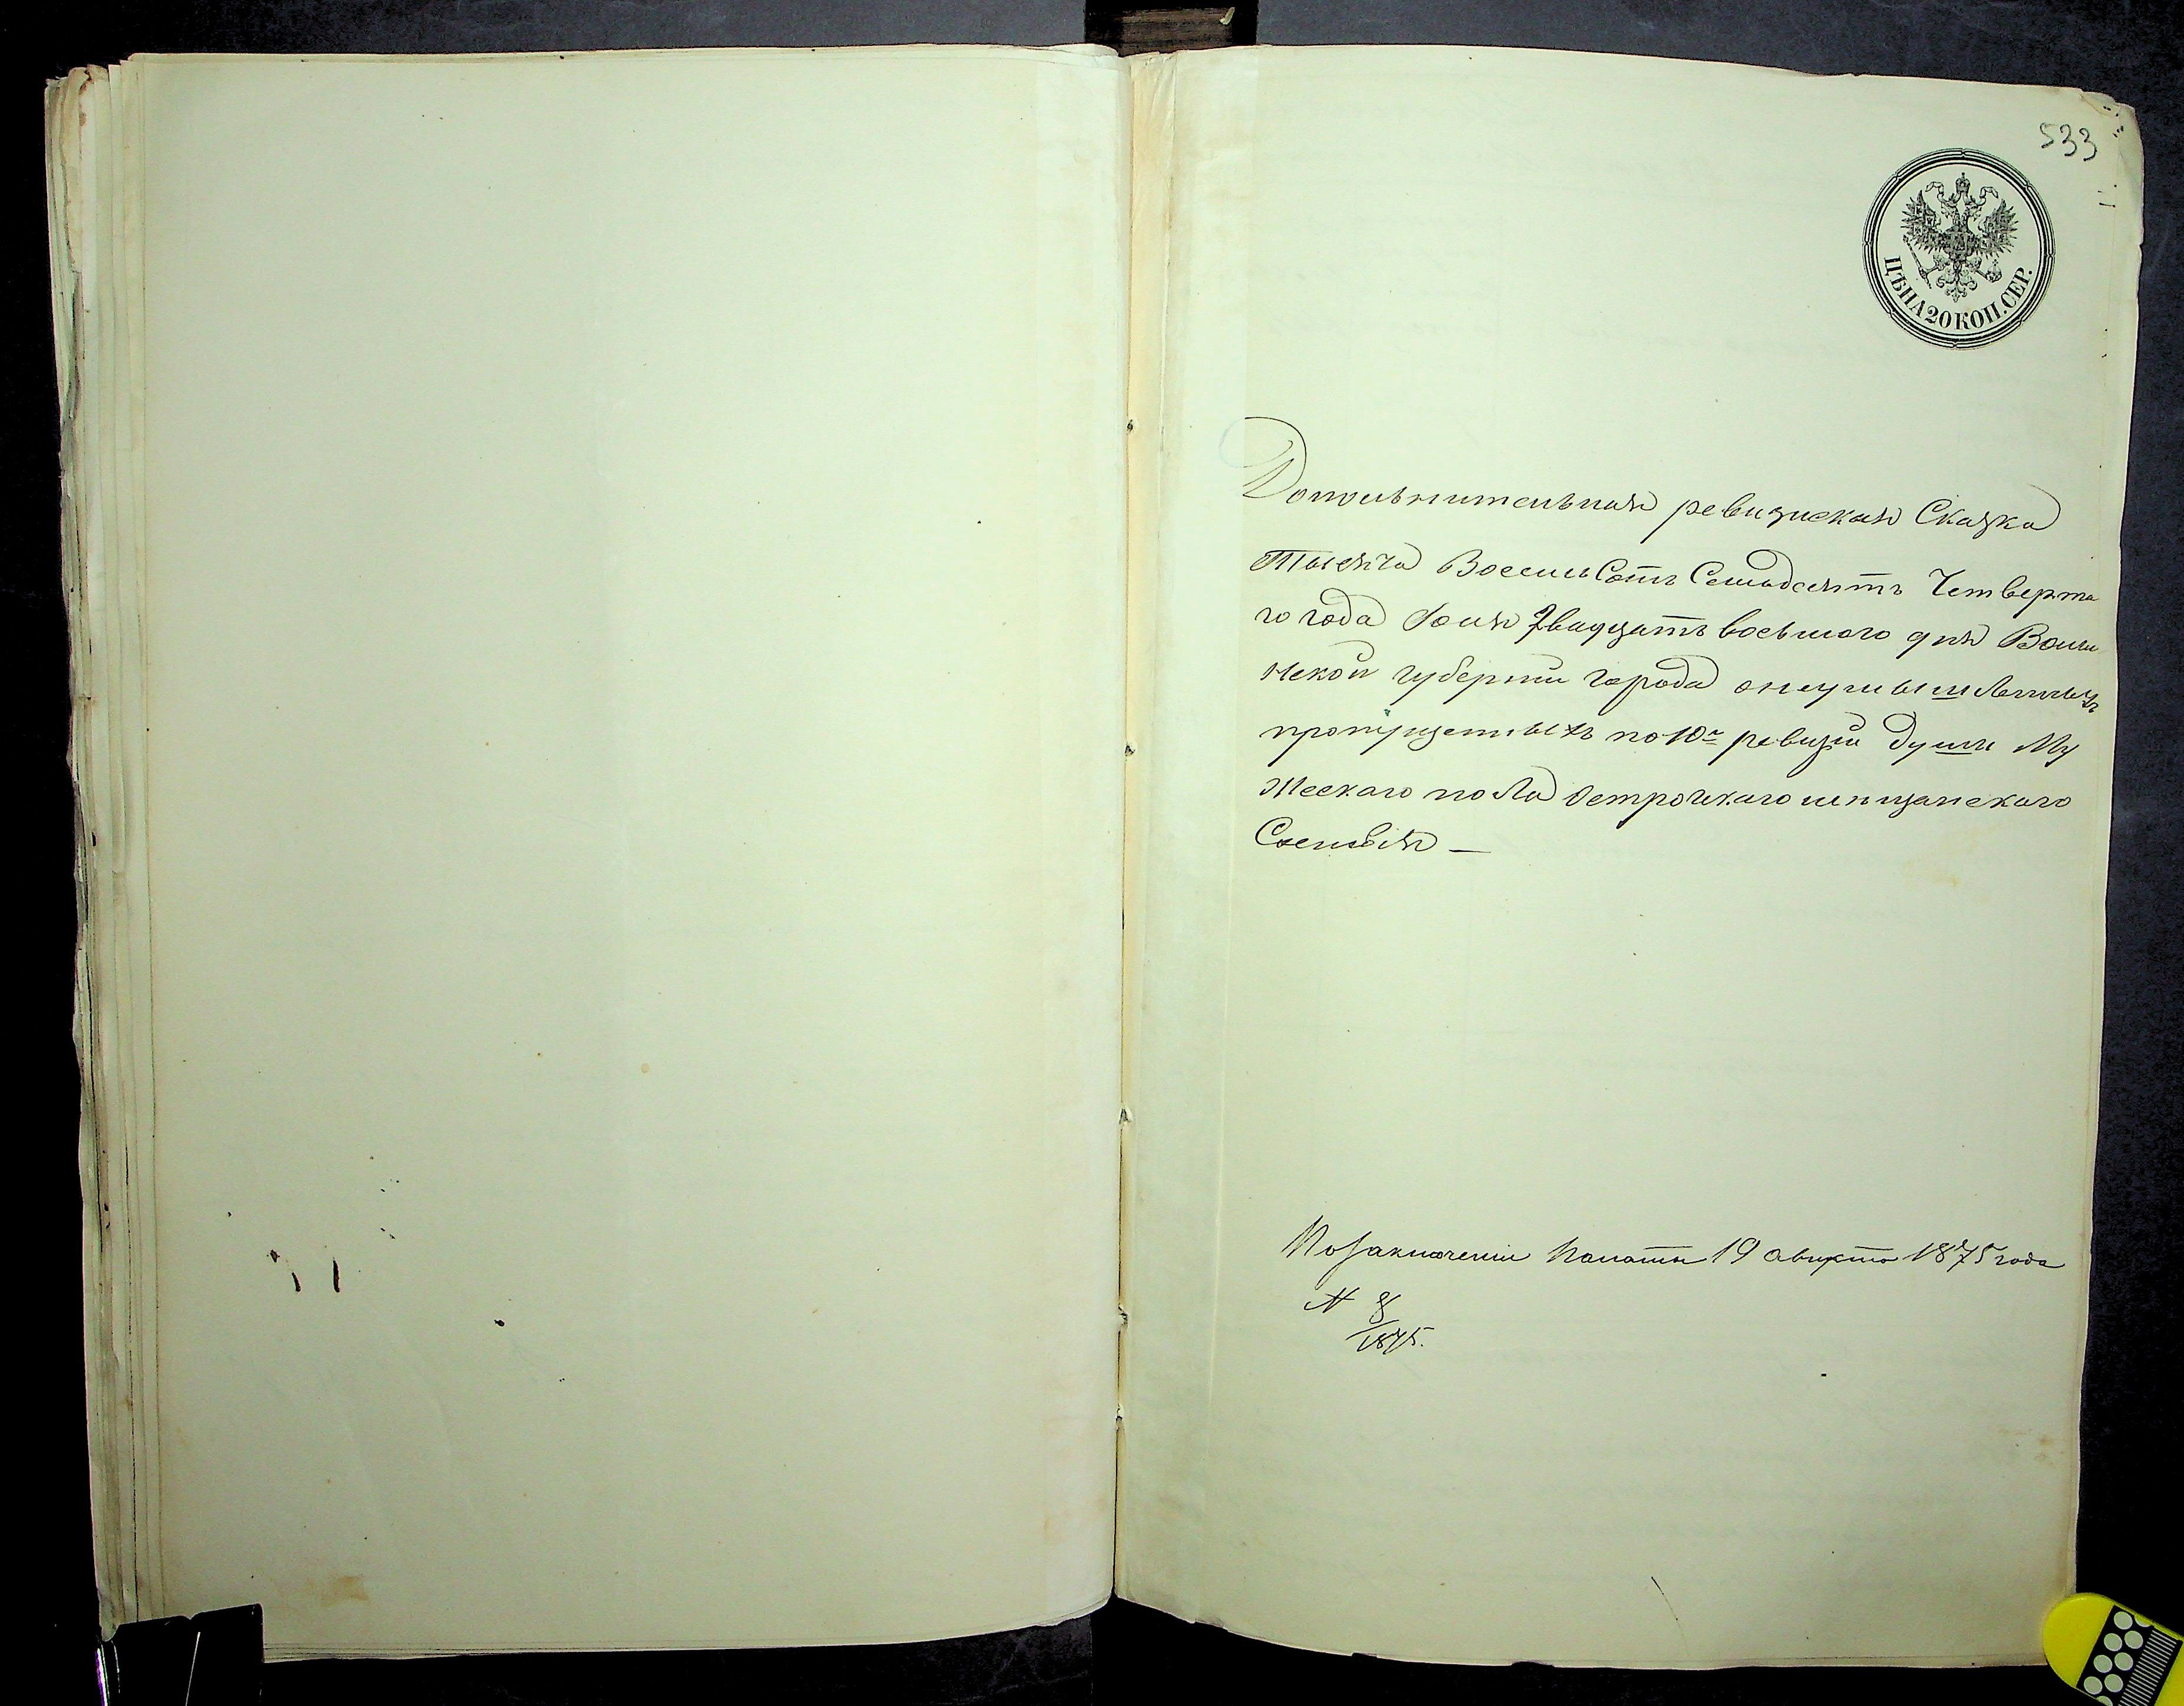 533
ЦѢНА 20 КОП. СЕР.
Дополнительная ревизская Сказка
Тысяча Восемь Сотъ Семьдесятъ Четверта
го года Юня Двадцать восьмого дня Волы
нской губернии города о неумышленныхъ
пропущенныхъ по 10й ревизіи души Му
жескаго пола Острожскаго мѣщанскаго
Сословія —
По заключенію Палаты 19 августа 1875 года
№ 8/1875.